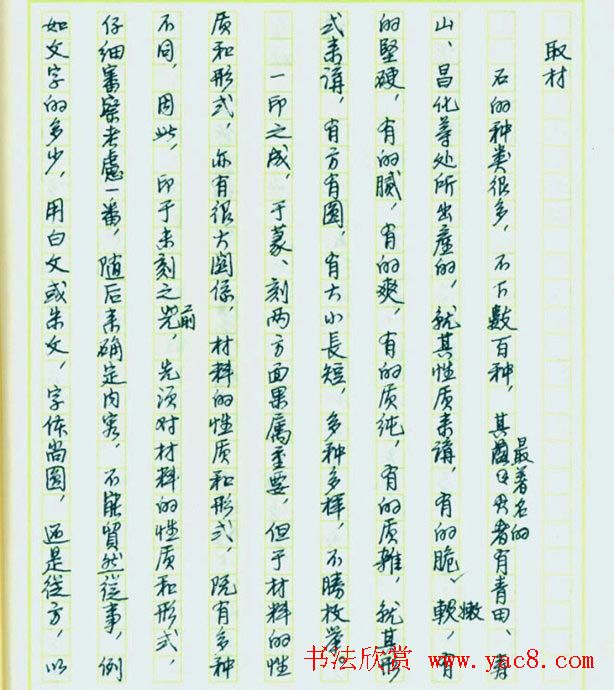 取材
石的种类很多，不下数百种，其最著名的者有青田、寿
山、昌化等处所出產的，就其性质来講，有的脆、嫩軟，有
的堅硬，有的膩，有的爽，有的质纯，有的质雜，就其形
式来講，有方有圆，有大小長短，多种多样，不勝枚举。
一印之成，于篆、刻两方面果属重要，但于材料的性
质和形式，亦有很大関係，材料的性质和形式，既有多种
不同，因此，印于未刻之前，先须对材料的性质和形式，
仔细審察考慮一番，随后来确定内容，不能貿然從事，例
如文字的多少，用白文或朱文，字体尚圆，还是從方，以
书法欣赏 www.yac8.com